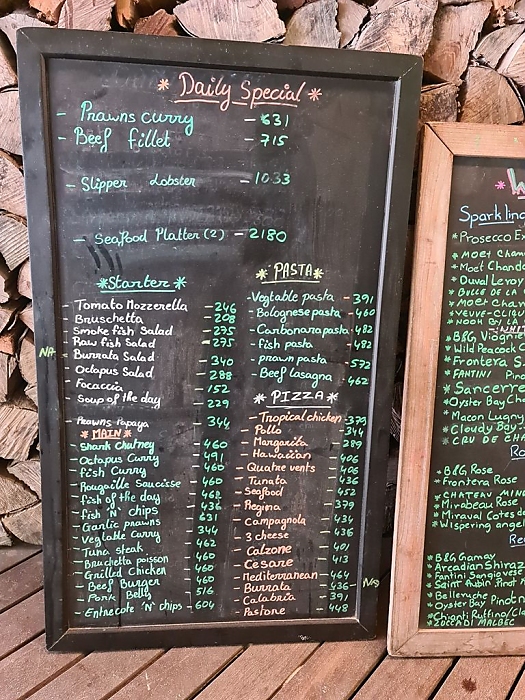 * Daily Special *
- Prawns curry - 631
- Beef fillet - 715
- Slipper Lobster - 1033
- Seafood Platter (2) - 2180
*Starter*
- Tomato Mozzerella - 246
- Bruschetta - 208
- Smoke fish Salad - 275
- Raw fish Salad - 275
NA - Burrata Salad - 340
- Octapus Salad - 288
- Focaccia - 152
- Soup of the day - 229
- Prawns Papaya - 344
*MAIN*
- Shark Chutney - 460
- Octapus Curry - 491
- fish Curry - 460
- Rougaille Saucisse - 460
- fish of the day - 468
- fish 'N' chips - 436
- Garlic prawns - 631
- Vegtable Curry - 344
- Tuna steak - 462
- Bruchetta poisson - 460
- Grilled Chicken - 460
- Beef Burger - 460
- Pork Belly - 516
- Entrecote 'N' chips - 604
* PASTA *
- Vegtable pasta - 391
- Bolognese pasta - 460
- Carbonara pasta - 482
- fish pasta - 482
- prawn pasta - 572
- Beef lasagna - 462
* PIZZA *
- Tropical chicken - 379
- Pollo - 344
- Margarita - 289
- Hawaiian - 406
- Quatre vents - 406
- Tunata - 436
- Seafood - 452
- Regina - 379
- Campagnola - 434
- 3 cheese - 436
- Calzone - 401
- Cesare - 413
- Mediterranean - 464
- Burrata - 436 - N/S
- Calabria - 391
- Pastone - 448
* W
Sparklin
* Prosecco Ex
* MOET Chan
* Moet Chand
* Duval Leroy
* BULLE DE LA
* MOET Chan
* VEUVE-CLIQU
* NOOH By LA
* B&G Viognie
* Wild Peacock C
* Frontera S
* FANTINI Pino
* Sancerre
* Oyster Bay Cha
* Macon Lugny
* Cloudy Bay
* CRU DE CHA
Ro
* B&G Rose
* Frontera Rose
* CHATEAU MINU
* Mirabeau Rose
* Miraval Cotes de
* Wispering angel
Re
* B&G Gamay
* Arcadian Shiraz
* Fantini Sangiovese
* Saint Aubin Pinot N
* Belleruche
* Oyster Bay Pinot n
* Chianti Ruffino/Cla
* ZUCCADI MALBEC